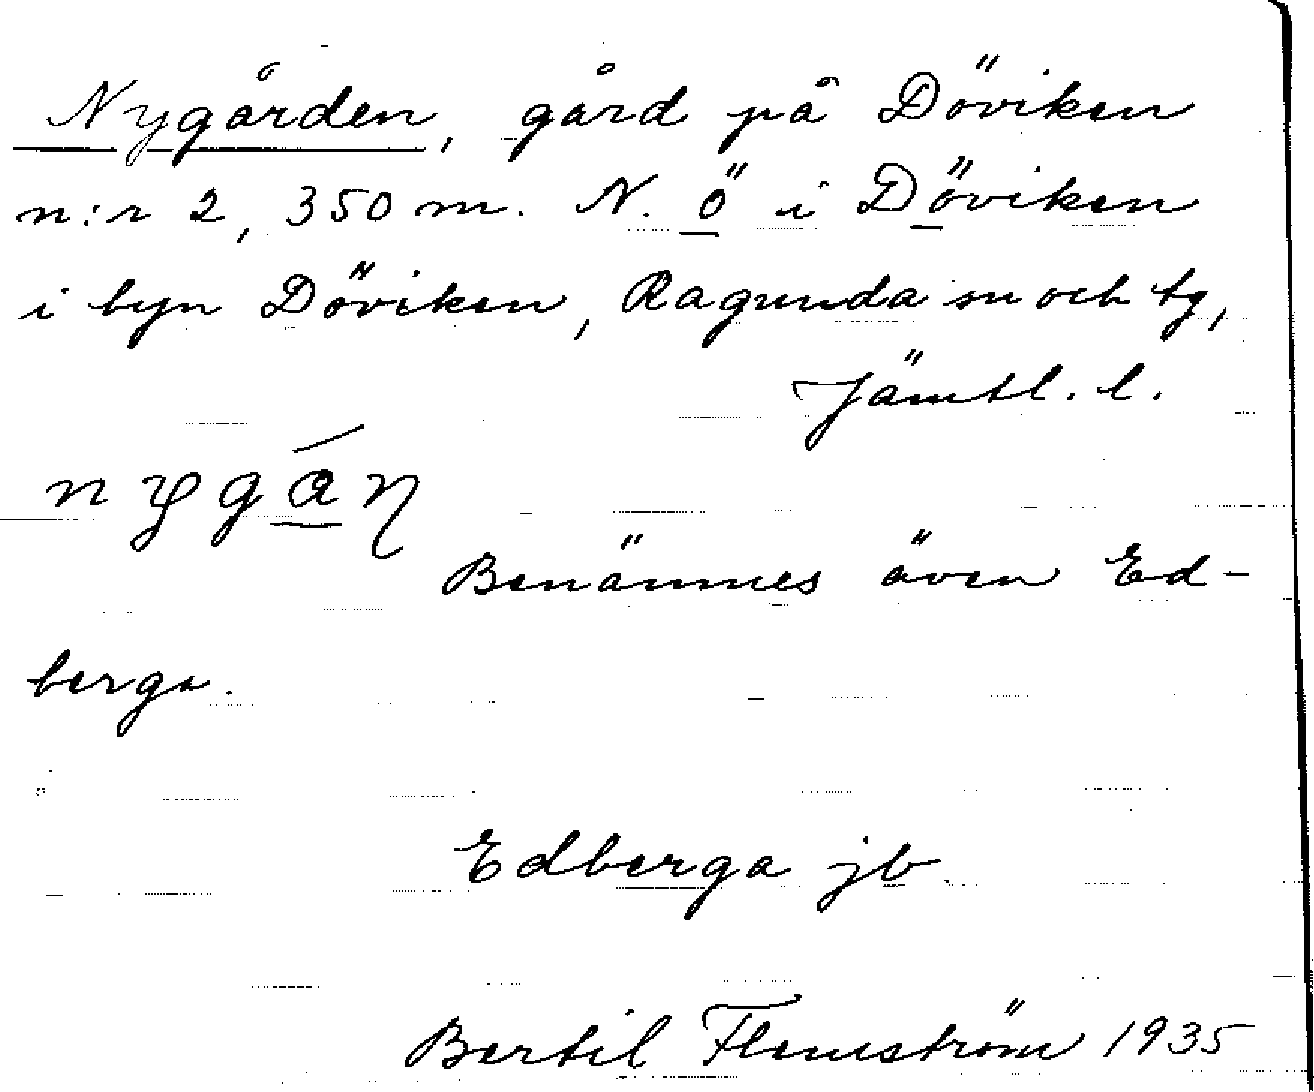 Nygården, gård på Döviken
n:r 2, 350 m. N. ö i Döviken
i byn Döviken, Ragunda sn och tg,
Jämtl. l.
Benämnes även Ed-
berga.
Edberga jb.
Bertil Flemström 1935